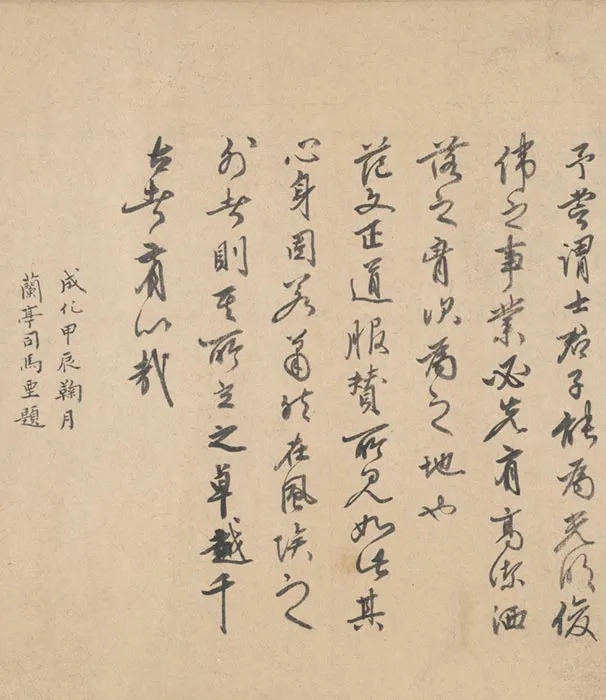 予嘗謂士君子能爲光明俊
偉之事業必先有高潔洒
落之胷次爲之地也
范文正道服賛所見如此其
心身固若蕭然在風埃之
外者則其所立之卓越千
古者有以哉
成化甲辰鞠月
蘭亭司馬垔題